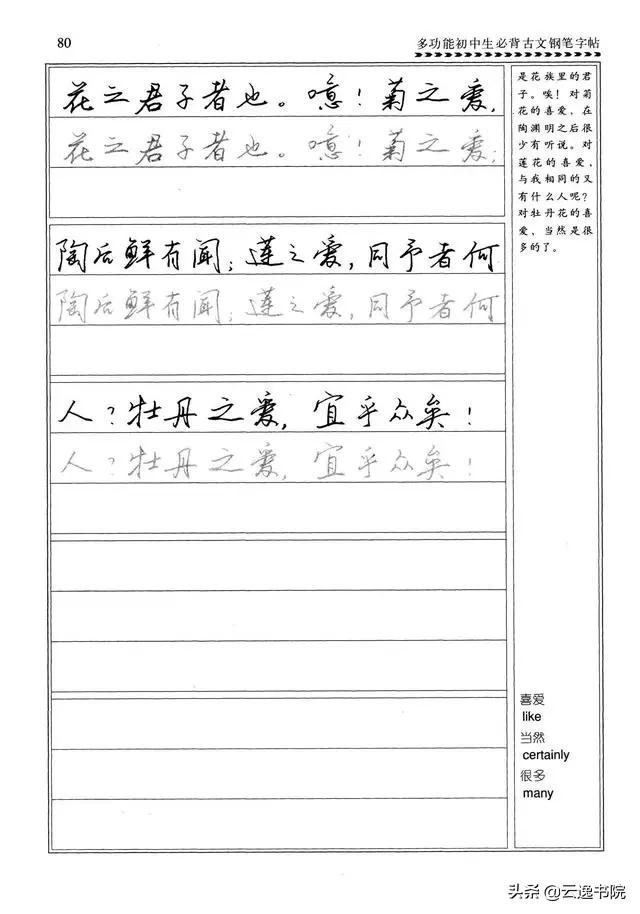 80
多功能初中生必背古文钢笔字帖
花之君子者也。噫！菊之爱，
花之君子者也。噫！菊之爱，
陶后鲜有闻；莲之爱，同予者何
陶后鲜有闻；莲之爱，同予者何
人？牡丹之爱，宜乎众矣！
人？牡丹之爱，宜乎众矣！
是花族里的君
子。唉！对菊
花的喜爱，在
陶渊明之后很
少有听说。对
莲花的喜爱，
与我相同的又
有什么人呢？
对牡丹花的喜
爱，当然是很
多的了。
喜爱
like
当然
certainly
很多
many
头条 @云逸书院